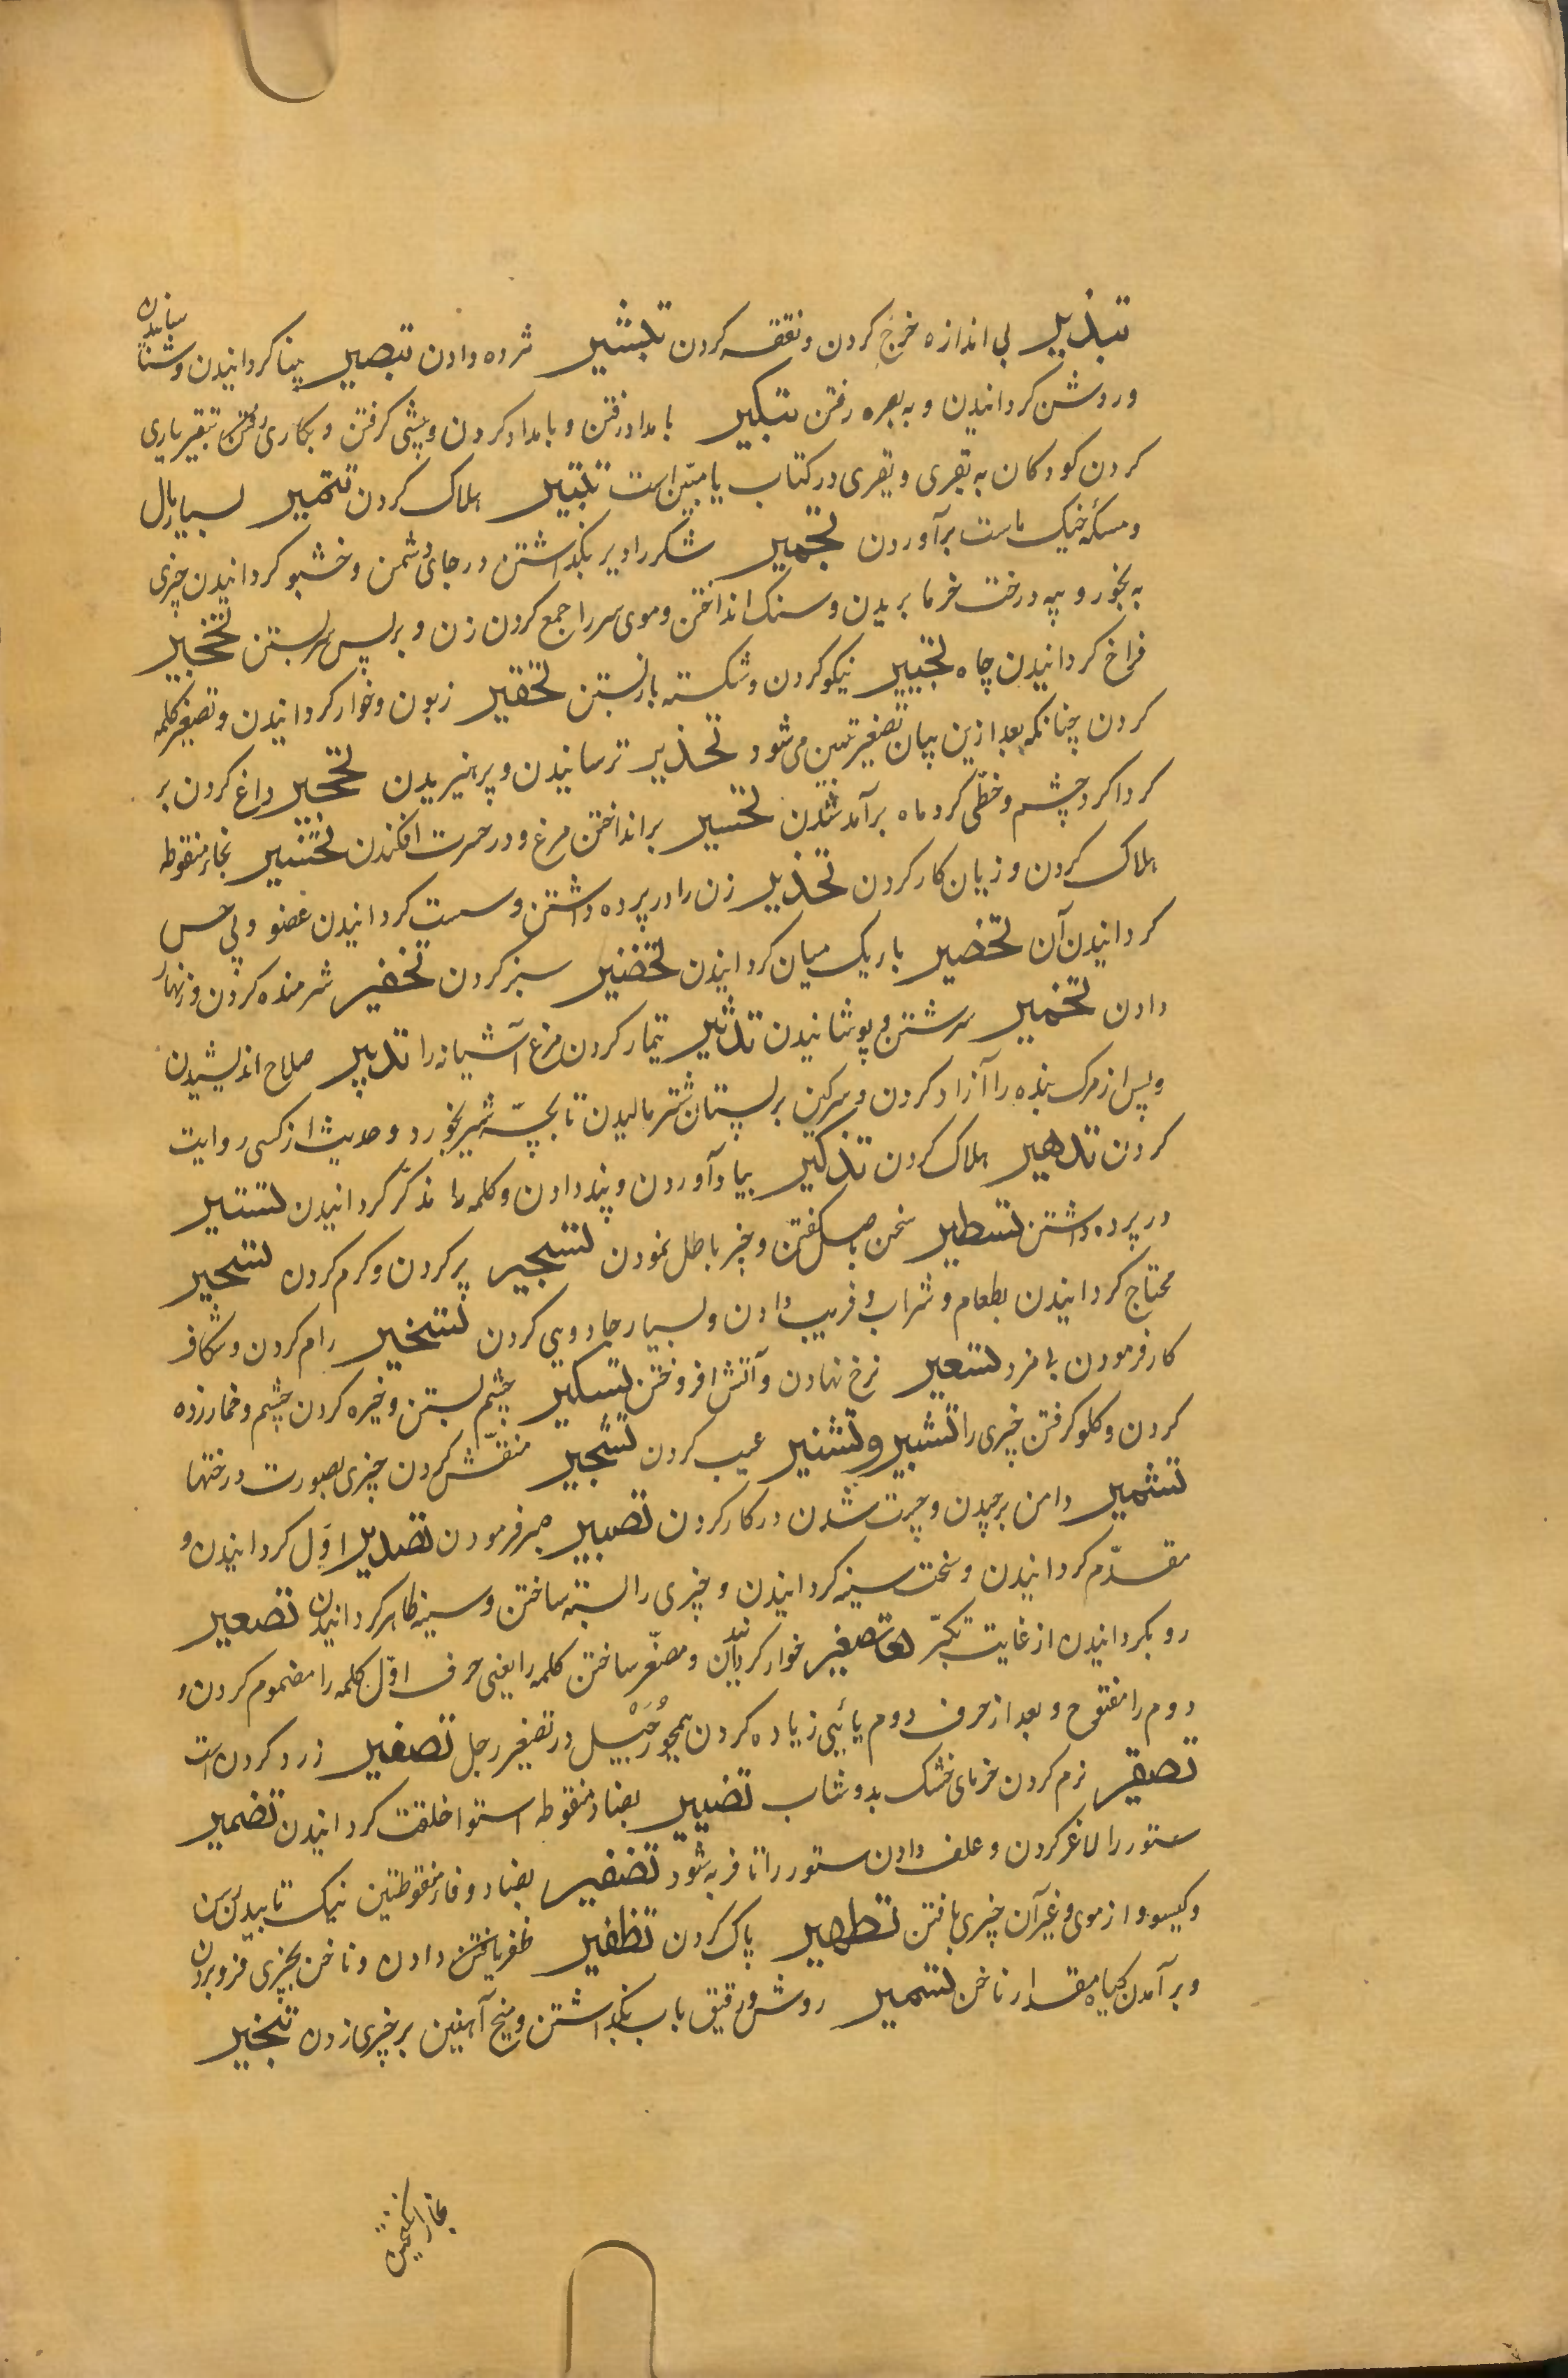 تبذیر بی اندازه خرج کردن و نفقه کردن تبشیر مژده دادن تبصیر بینا کردانیدن و شناسانیدن
و روشن کردانیدن و به بصره رفتن تبکیر بامداد رفتن و بامداد کردن و پیشی کرفتن و بکاری رفتن تبقیر بازی
کردن کودکان به بقیری و بقیری در کتاب یا مبیّن است تتبیر هلاک کردن تثمیر بسیار مال
و مسکه خیک ماست برآوردن تجمیر لشکر را دیر بکذاشتن در جای دشمن و خشبو کردانیدن چیزی
به بخور و پیه درخت خرما بریدن و سنک انداختن و موی سر را جمع کردن زن و بر پس سر بستن
فراخ کردانیدن چاه تجبیر نیکو کردن و شکسته باز بستن تحقیر زبون و خوار کردانیدن و تصغیر کلمه
کردن چنانکه بعد ازین بیان تصغیر مبین می شود تحذیر ترسانیدن و پرهیزیدن تحجیر داغ کردن بر
کرداکرد چشم و خطّی کرد ماه برآمدن تحسیر برانداختن مرغ و در حسرت افکندن تخسیر بخاء منقوطه
هلاک کردن و زیان کار کردن تخدیر زن را در پرده داشتن و سست کردانیدن عضو و بی حس
کردانیدن آن تخصیر باریک میان کردانیدن تخضیر سبز کردن تخفیر شرمنده کردن و زنهار
دادن تخمیر سرشتن و پوشانیدن تدثیر تیمار کردن مرغ آشیانه را تدبیر صلاح اندیشیدن
و پس از مرک بنده را آزاد کردن و سرکین بر پستان شتر مالیدن تا بچّه شیر نخورد و حدیث از کسی روایت
کردن تدهیر هلاک کردن تذکیر بیاد آوردن و پند دادن و کلمه را مذکّر کردانیدن تستیر
در پرده داشتن تسطیر سخن باصل کفتن و چیز باطل نمودن تسجیر پر کردن و کرم کردن تسحیر
محتاج کردانیدن بطعام و شراب و فریب دادن و بسیار جادویی کردن تسخیر رام کردن و
کار فرمودن بی مزد تسعیر نرخ نهادن و آتش افروختن تسکیر چشم بستن و خیره کردن چشم و خمار زده
کردن و کلو کرفتن چیزی را تشبیر و تشنیر عیب کردن تشجیر منقّش کردن چیزی بصورت درختها
تشمیر دامن برچیدن و چست شدن در کار کردن تصبیر صبر فرمودن تصدیر اوّل کردانیدن و
مقدّم کردانیدن و سخت سینه کردانیدن و چیزی را بسته ساختن و سینه ظاهر کردانیدن تصعیر
رو بکردانیدن از غایت تکبّر تصغیر خوار کردانیدن و مصغّر ساختن کلمه را یعنی حرف اوّل کلمه را مضموم کردن و
دوم را مفتوح و بعد از حرف دوم یائیی زیاده کردن همچو رُجَیْل در تصغیر رجل تصفیر زرد کردن است
تصقیر نرم کردن خرمای خشک بدوشاب تضبیر بضاد منقوطه استوار خلقت کردانیدن تضمیر
ستور را لاغر کردن و علف دادن ستور را تا فربه شود تضفیر بضاد و فاء منقوطتین نیک تابیدن رسن
و کیسو و از موی و غیر آن چیزی بافتن تطهیر پاک کردن تظفیر ظفر یافتن دادن و ناخن بچیزی فرو بردن
و برآمدن کیاه مقدار ناخن تسمیر روشن و رقیق بآب بکذاشتن و میخ آهنین بر چیزی زدن تنخیر